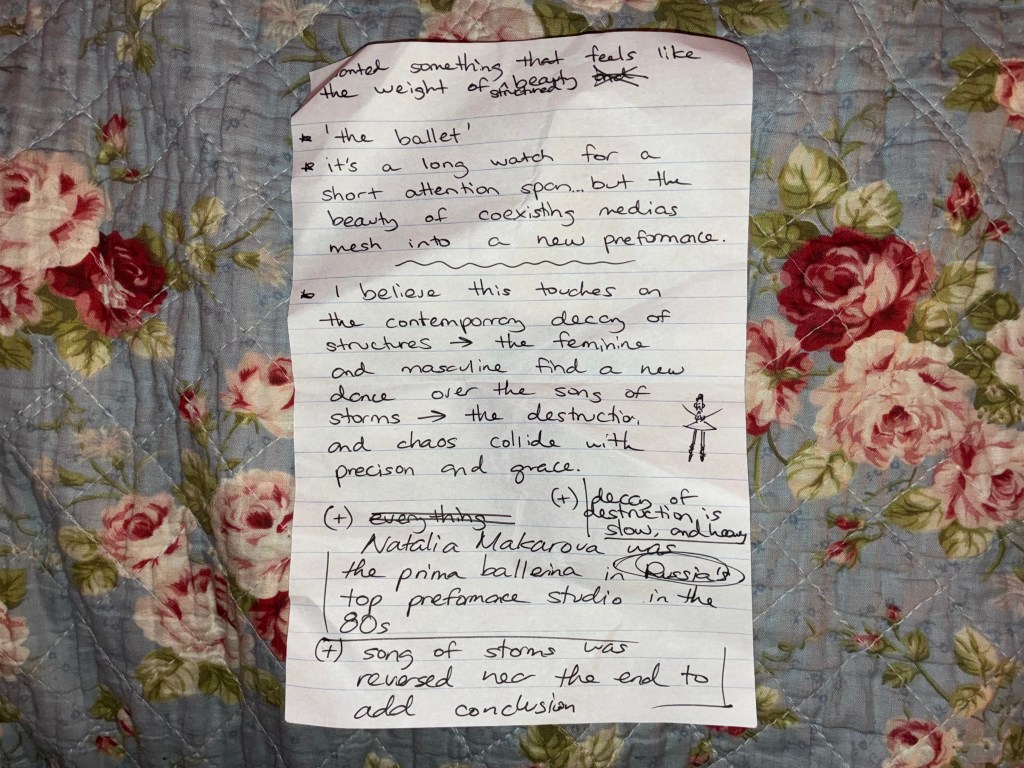 wanted something that feels like
the weight of structured beauty
* 'the ballet'
* it's a long watch for a
short attention span... but the
beauty of coexisting medias
mesh into a new preformance.
* I believe this touches on
the contemporary decay of
structures → the feminine
and masculine find a new
dance over the song of
storms → the destruction
and chaos collide with
precison and grace.
(+) decay of
destruction is
slow, and heavy
(+) everything
Natalia Makarova was
the prima ballerina in Russia's
top preformace studio in the
80s
(+) song of storms was
reversed near the end to
add conclusion